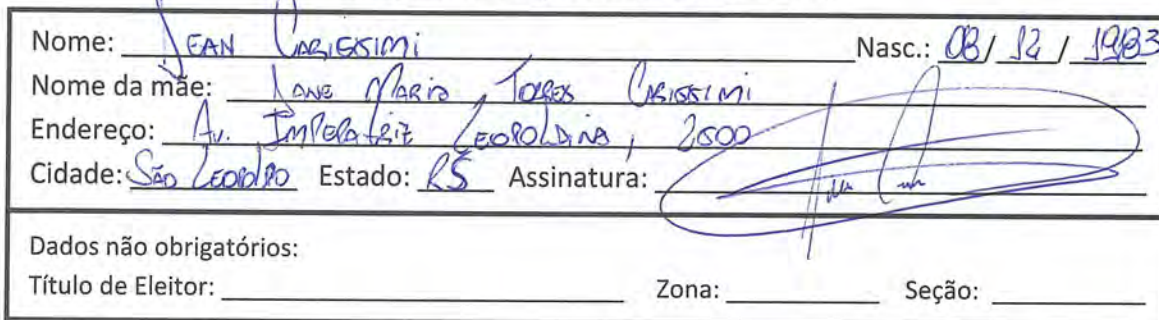 Nome: JEAN CARISSIMI Nasc.: 08/12/1983
Nome da mãe: JANE MARIA TORRES CARISSIMI
Endereço: Av. IMPERATRIZ LEOPOLDINA, 2500
Cidade: SÃO LEOPOLDO Estado: RS Assinatura:
Dados não obrigatórios:
Título de Eleitor: Zona: Seção: